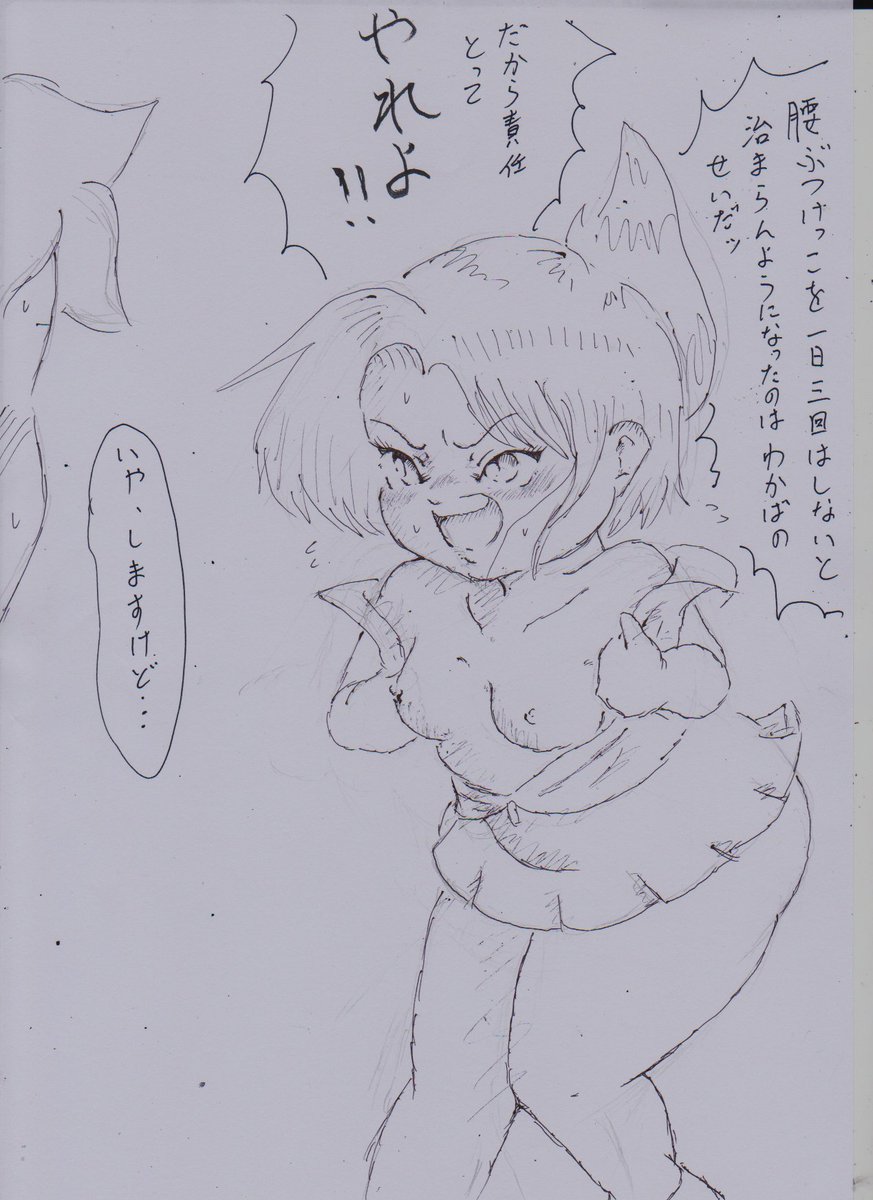 腰ぶつけっこを一日三回はしないと
治まらんようになったのはわかばの
せいだッ
だから責任
とって
やれよ
!!
いや、しますけど・・・